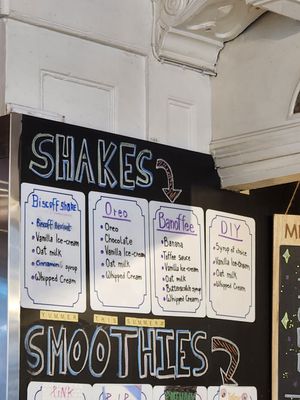 SHAKES
Biscoff shake
Biscoff
Vanilla Ice-cream
Oat milk
Cinnamon syrup
Whipped Cream
Oreo
Oreo
Chocolate
Vanilla Ice-cream
Oat milk
Whipped Cream
Banoffee
Banana
Toffee sauce
Vanilla Ice-cream
Oat milk
Butterscotch syrup
Whipped Cream
DIY
Syrup of choice
Vanilla Ice-cream
Oat milk
Whipped Cream
YUMMER THIS SUMMER
SMOOTHIES
PINK